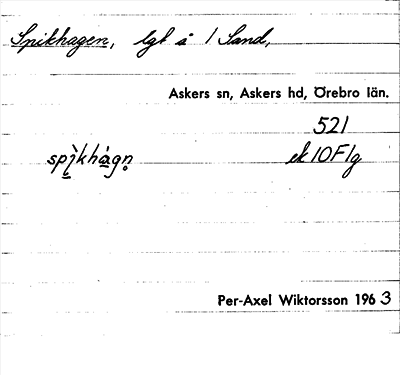 Spikhagen, lgt å 1 Sand,
Askers sn, Askers hd, Örebro län.
521
spì̱khàgn̥ ek 10F1g
Per-Axel Wiktorsson 1963